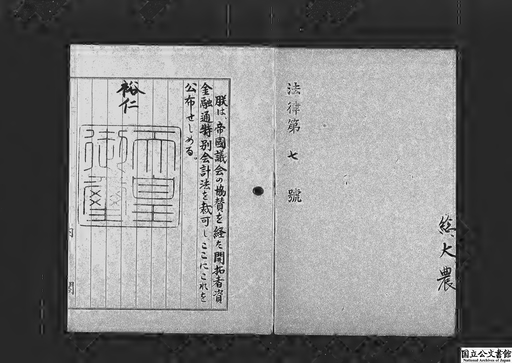 法律第七號
朕は、帝國議会の協賛を経た開拓者資
金融通特別会計法を裁可し、ここにこれを
公布せしめる。
裕仁
天皇
御璽
内閣
国立公文書館
National Archives of Japan